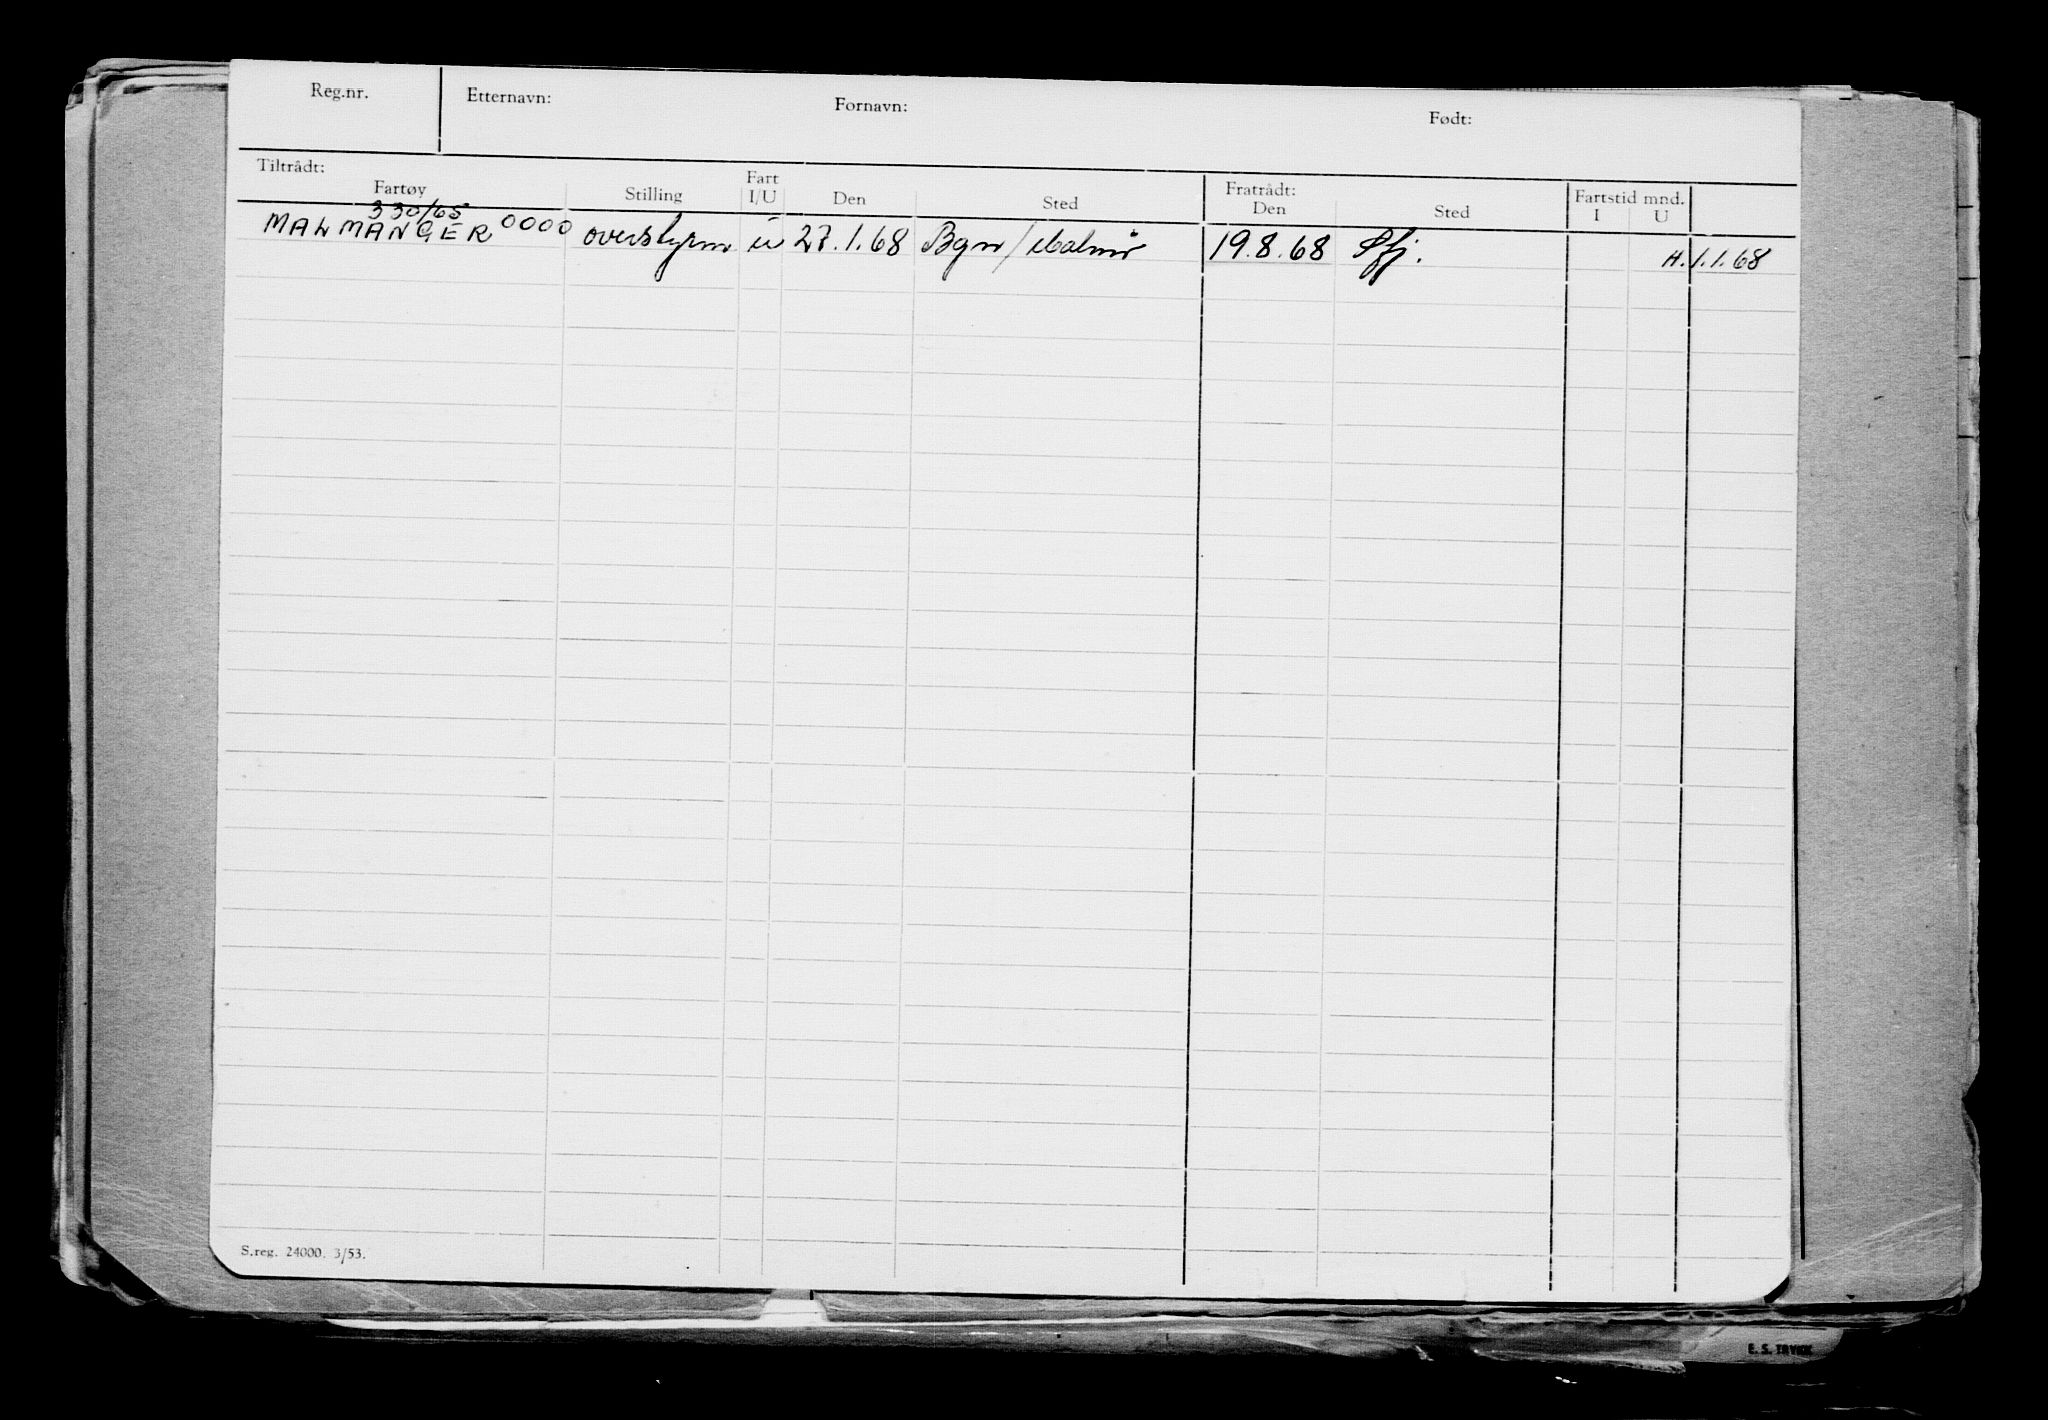 Reg.nr. Etternavn: Fornavn: Født:
Tiltrådt: Fratrådt:
Fartøy Stilling Fart I/U Den Sted Den Sted Fartstid mnd. I U
330/65
MALMANGER 0000 overstyrm u 27.1.68 Bgn/Malmö 19.8.68 Sfj. H. 1.1.68
S.reg. 24000. 3/53.
E. S. TRYKK